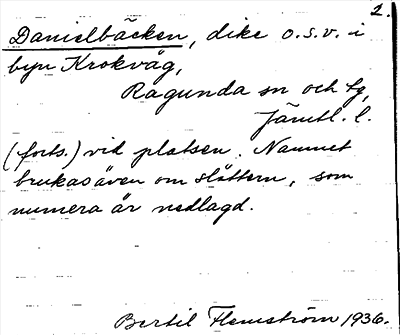 2.
Danielbäcken, dike o.s.v. i
byn Krokvåg,
Ragunda sn och tg,
Jämtl. l.
(forts.) vid platsen. Namnet
brukas även om slåttern, som
numera är nedlagd.
Bertil Flemström 1936.